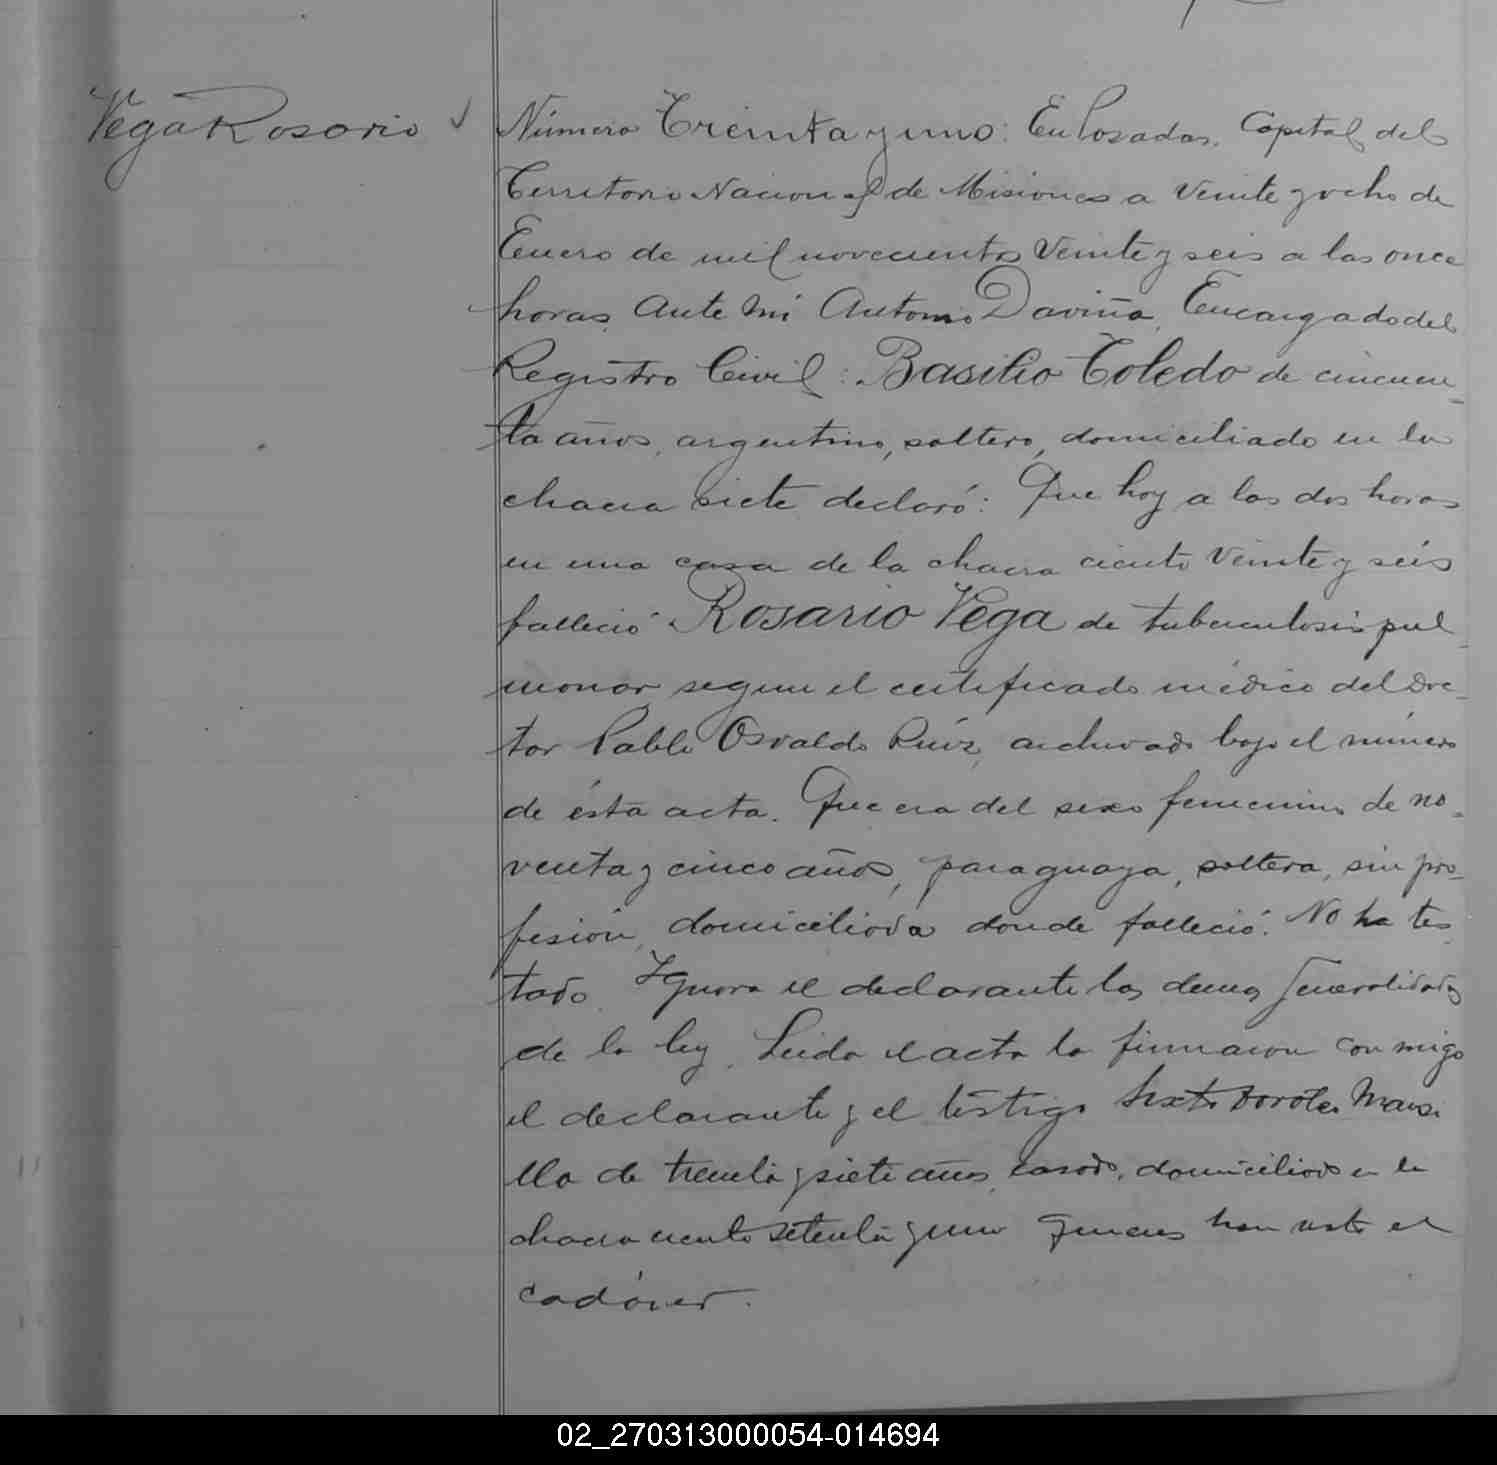 Vega Rosario
Número Treinta y uno: En Posadas, Capital del
Territorio Nacional de Misiones a veinte y ocho de
Enero de mil novecientos veinte y seis a las once
horas, ante mi Antonio Daviña, Encargado del
Registro Civil: Basilio Toledo de cincuen-
ta años, argentino, soltero, domiciliado en la
chacra siete declaró: Que hoy a las dos horas
en una casa de la chacra ciento veinte y seis
falleció Rosario Vega de tuberculosis pul-
monar segun el certificado médico del doc-
tor Pablo Osvaldo Ruiz, archivado bajo el número
de ésta acta. Que era del sexo femenino de no-
venta y cinco años, paraguaya, soltera, sin pro-
fesión, domiciliada donde falleció. No ha tes
tado. Ignora el declarante las demas generalidades
de la ley. Leida el acta la firmaron conmigo
el declarante y el testigo Sixto Doroteo Mansi
lla de treinta y siete años, casado, domiciliado en la
chacra ciento setenta y uno quienes han visto el
cadáver.
02_270313000054-014694